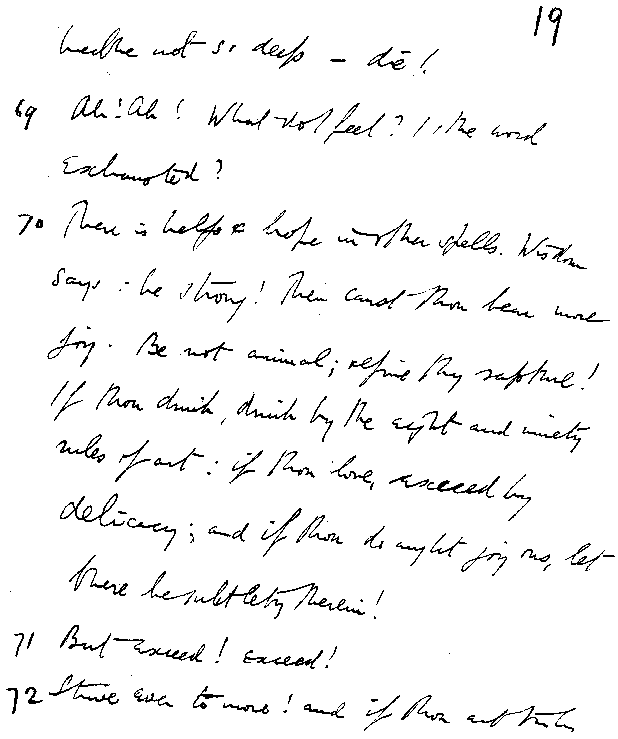 19
breathe not so deep — die!
69 Ah! Ah! What do I feel? Is the word
exhausted?
70 There is help & hope in other spells. Wisdom
says: be strong! Then canst thou bear more
joy. Be not animal; refine thy rapture!
If thou drink, drink by the eight and ninety
rules of art: if thou love, exceed by
delicacy; and if thou do aught joyous, let
there be subtlety therein!
71 But exceed! exceed!
72 Strive ever to more! and if thou art truly